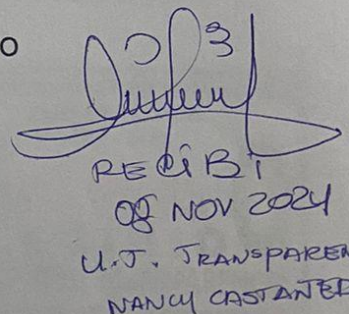 O
RECiBi
08 NOV 2024
U.T. TRANSPAREN
NANCY CASTAÑED